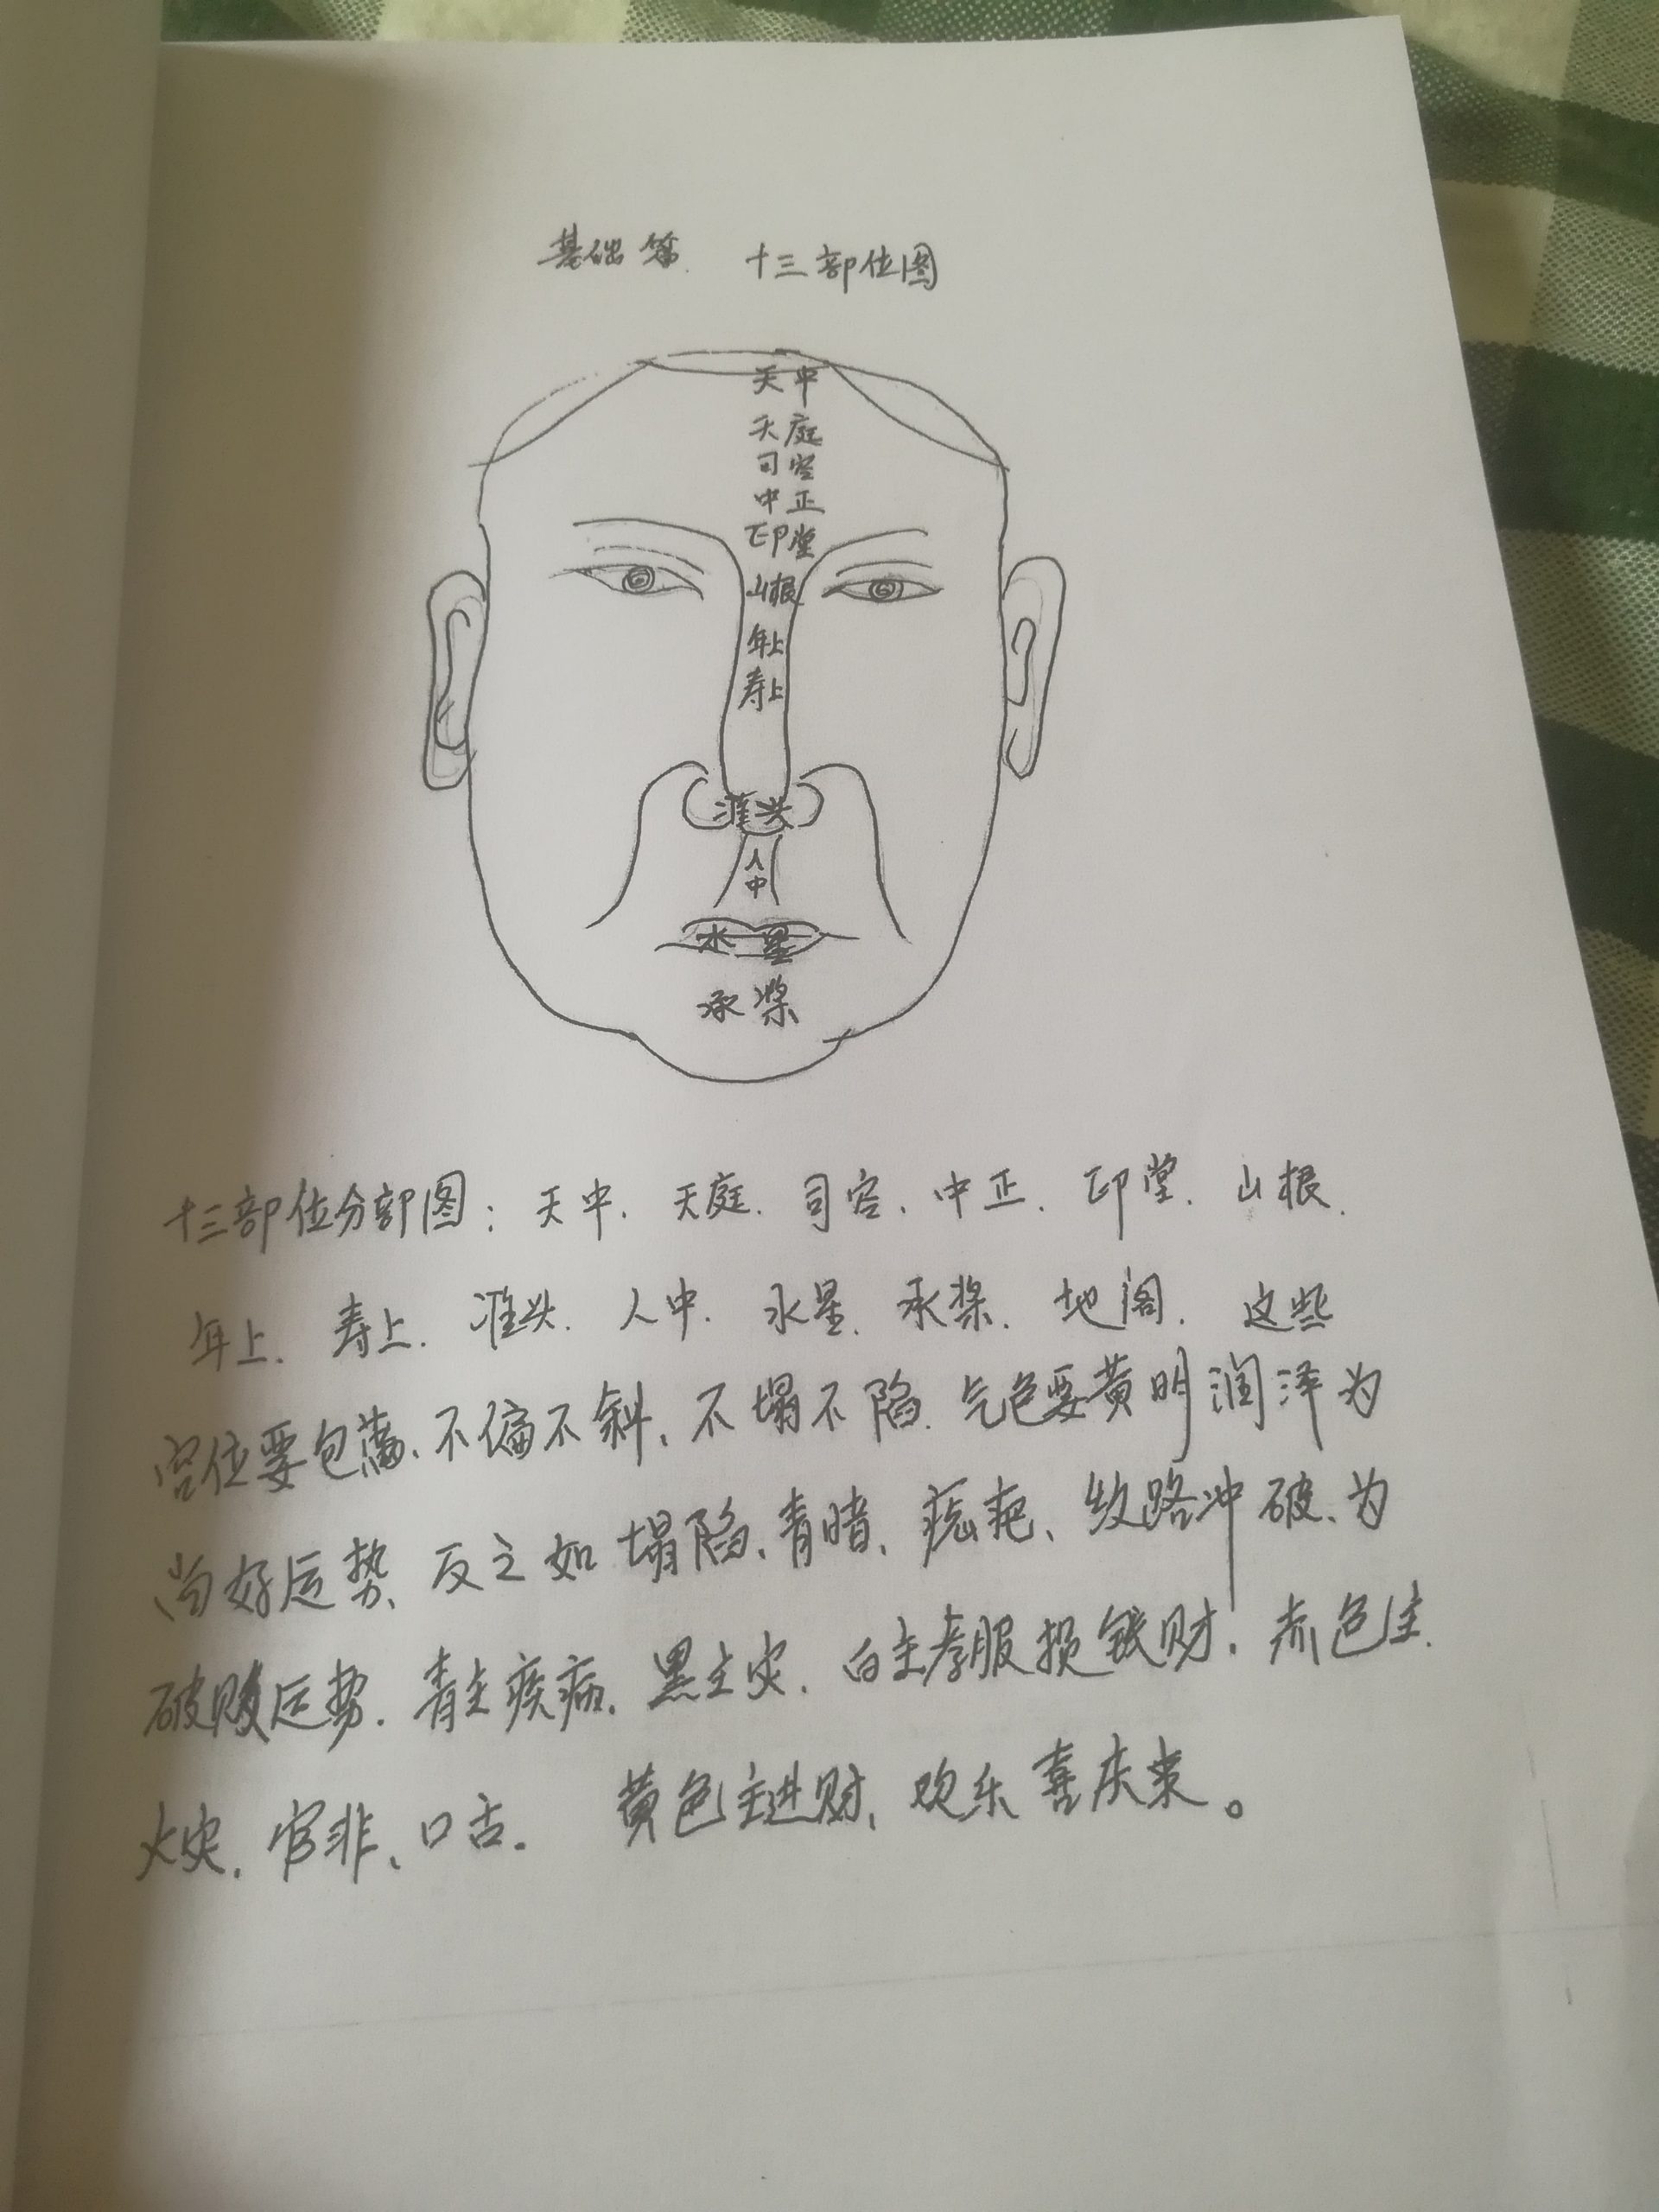 基础篇 十三部位图
天中
天庭
司空
中正
印堂
山根
年上
寿上
准头
人
中
水星
承浆
十三部位分部图：天中、天庭、司空、中正、印堂、山根、
年上、寿上、准头、人中、水星、承浆、地阁、这些
宫位要包满、不偏不斜、不塌不陷、气色要黄明润泽为
尚好运势、反之如塌陷、青暗、痣疤、纹路冲破、为
破败运势、青主疾病、黑主灾、白主孝服损钱财、赤色主
火灾、官非、口舌、黄色主进财、欢乐喜庆来。